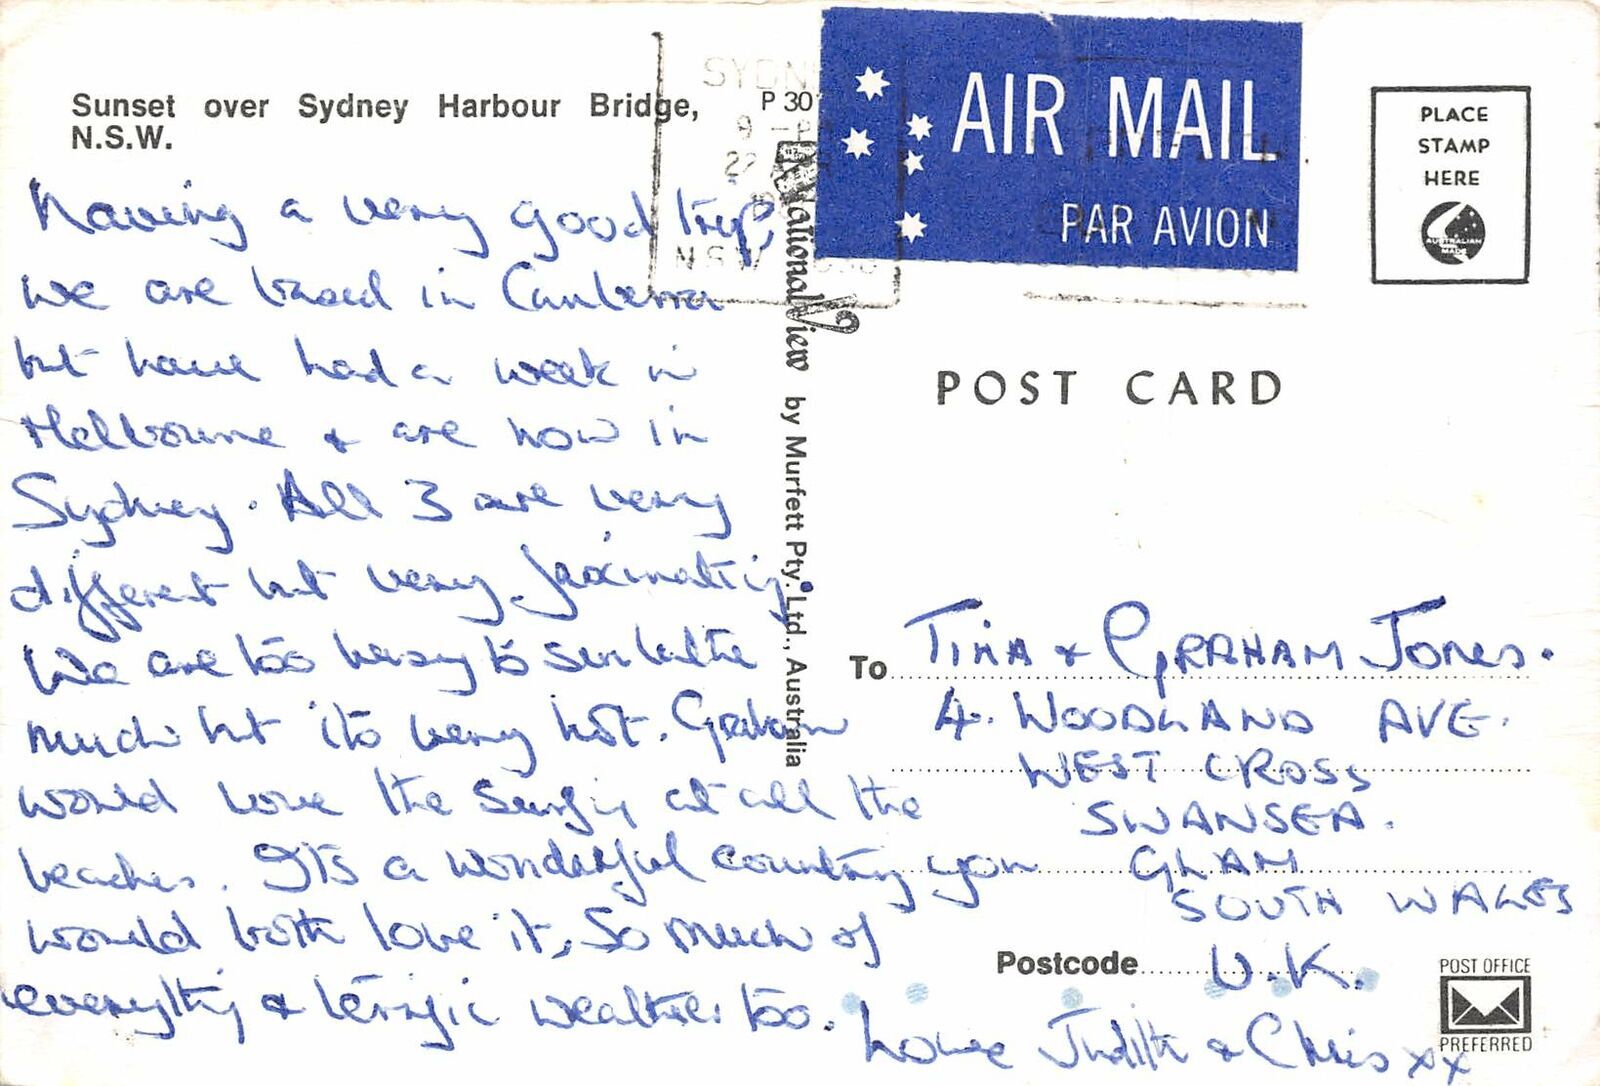 Sunset over Sydney Harbour Bridge,
N.S.W.
Having a very good trip,
we are based in Canberra
but have had a week in
Melbourne & are now in
Sydney. All 3 are very
different but very fascinating.
We are too busy to sunbathe
much but its very hot. Graham
would love the surfing at all the
beaches. Its a wonderful country you
would both love it, So much of
everything & terrific weather too.
Love Judith & Chris xx
P 30
NationalView by Murfett Pty. Ltd., Australia
SYDN
22
N.S.W.
AIR MAIL
PAR AVION
PLACE
STAMP
HERE
AUSTRALIAN
MADE
POST CARD
To Tina & GRAHAM Jones.
4. WOODLAND AVE.
WEST CROSS
SWANSEA.
GLAM
SOUTH WALES
Postcode U.K.
POST OFFICE
PREFERRED